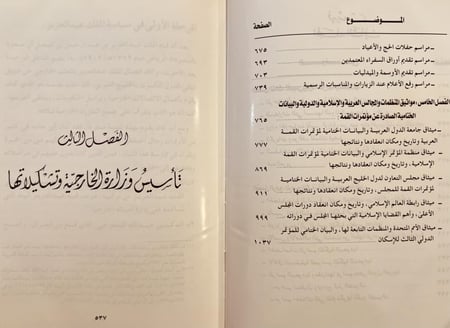 الموضوع الصفحة
ـ مراسم حفلات الحج والأعياد ٦٧٥
ـ مراسم تقديم أوراق السفراء المعتمدين ٦٩٣
ـ مراسم تقديم الأوسمة والميداليات ٧٠٣
ـ مراسم رفع الأعلام عند الزيارات والمناسبات الرسمية ٧٣٩
الفصل الخامس، مواثيق المنظمات والمجالس العربية والإسلامية والدولية والبيانات
الختامية الصادرة عن مؤتمرات القمة ٧٦٥
ـ ميثاق جامعة الدول العربية والبيانات الختامية لمؤتمرات القمة
العربية وتاريخ ومكان انعقادها ونتائجها ٧٧٧
ـ ميثاق منظمة المؤتمر الإسلامي والبيانات الختامية لمؤتمرات القمة
الإسلامية، وتاريخ ومكان انعقادها ونتائجها ٨٦٩
ـ ميثاق مجلس التعاون لدول الخليج العربية والبيانات الختامية
لمؤتمرات القمة للمجلس، وتاريخ ومكان انعقادها ونتائجها ٩١١
ـ ميثاق رابطة العالم الإسلامي، وتاريخ ومكان انعقاد دورات المجلس
الأعلى، وأهم القضايا الإسلامية التي بحثها المجلس في دوراته ٩٩٩
ـ ميثاق الأمم المتحدة والمنظمات التابعة لها، والبيان الختامي للمؤتمر
الدولي الثالث للإسكان ١٠٣٧
الفصل الثالث
تأسيس وزارة الخارجية وتشكيلاتها
٥٣٧